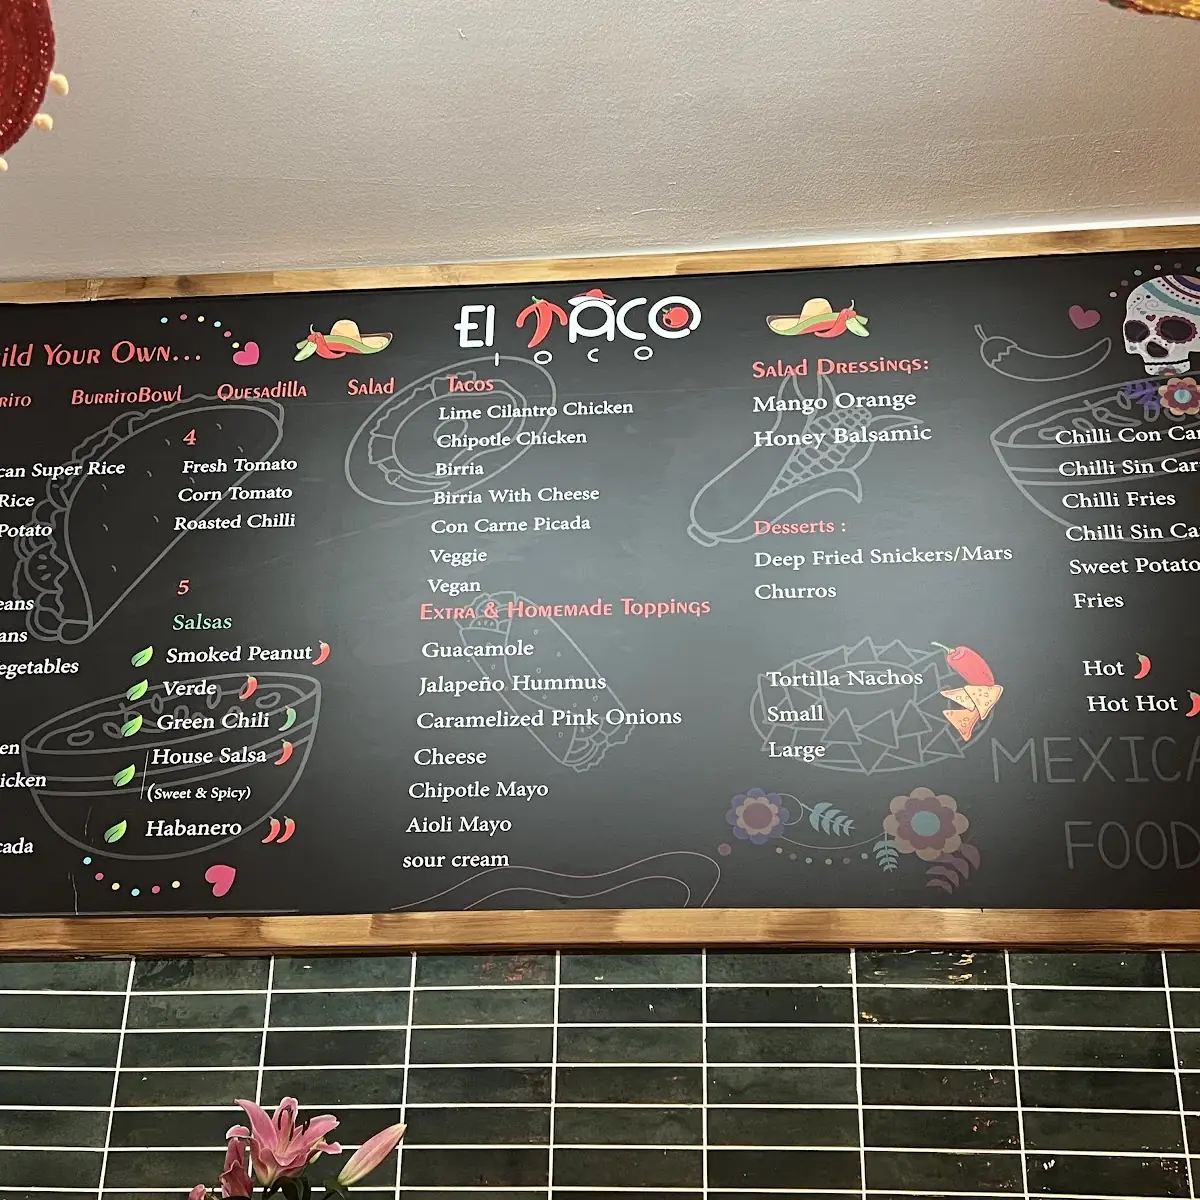 Your Own...
BurritoBowl Quesadilla Salad Tacos
Super Rice
Rice
Potato
Vegetables
4
Fresh Tomato
Corn Tomato
Roasted Chilli
5
Salsas
Smoked Peanut
Verde
Green Chili
House Salsa
(Sweet & Spicy)
Habanero
El TACO
loco
Lime Cilantro Chicken
Chipotle Chicken
Birria
Birria With Cheese
Con Carne Picada
Veggie
Vegan
Extra & Homemade Toppings
Guacamole
Jalapeño Hummus
Caramelized Pink Onions
Cheese
Chipotle Mayo
Aioli Mayo
sour cream
Salad Dressings:
Mango Orange
Honey Balsamic
Desserts :
Deep Fried Snickers/Mars
Churros
Tortilla Nachos
Small
Large
Chilli Con
Chilli Sin
Chilli Fries
Chilli Sin
Sweet Potato
Fries
Hot
Hot Hot
MEXICA
FOOD